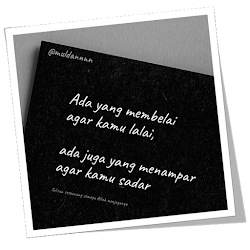 @muldannnn
Ada yang membelai
agar kamu lalai,
ada juga yang menampar
agar kamu sadar